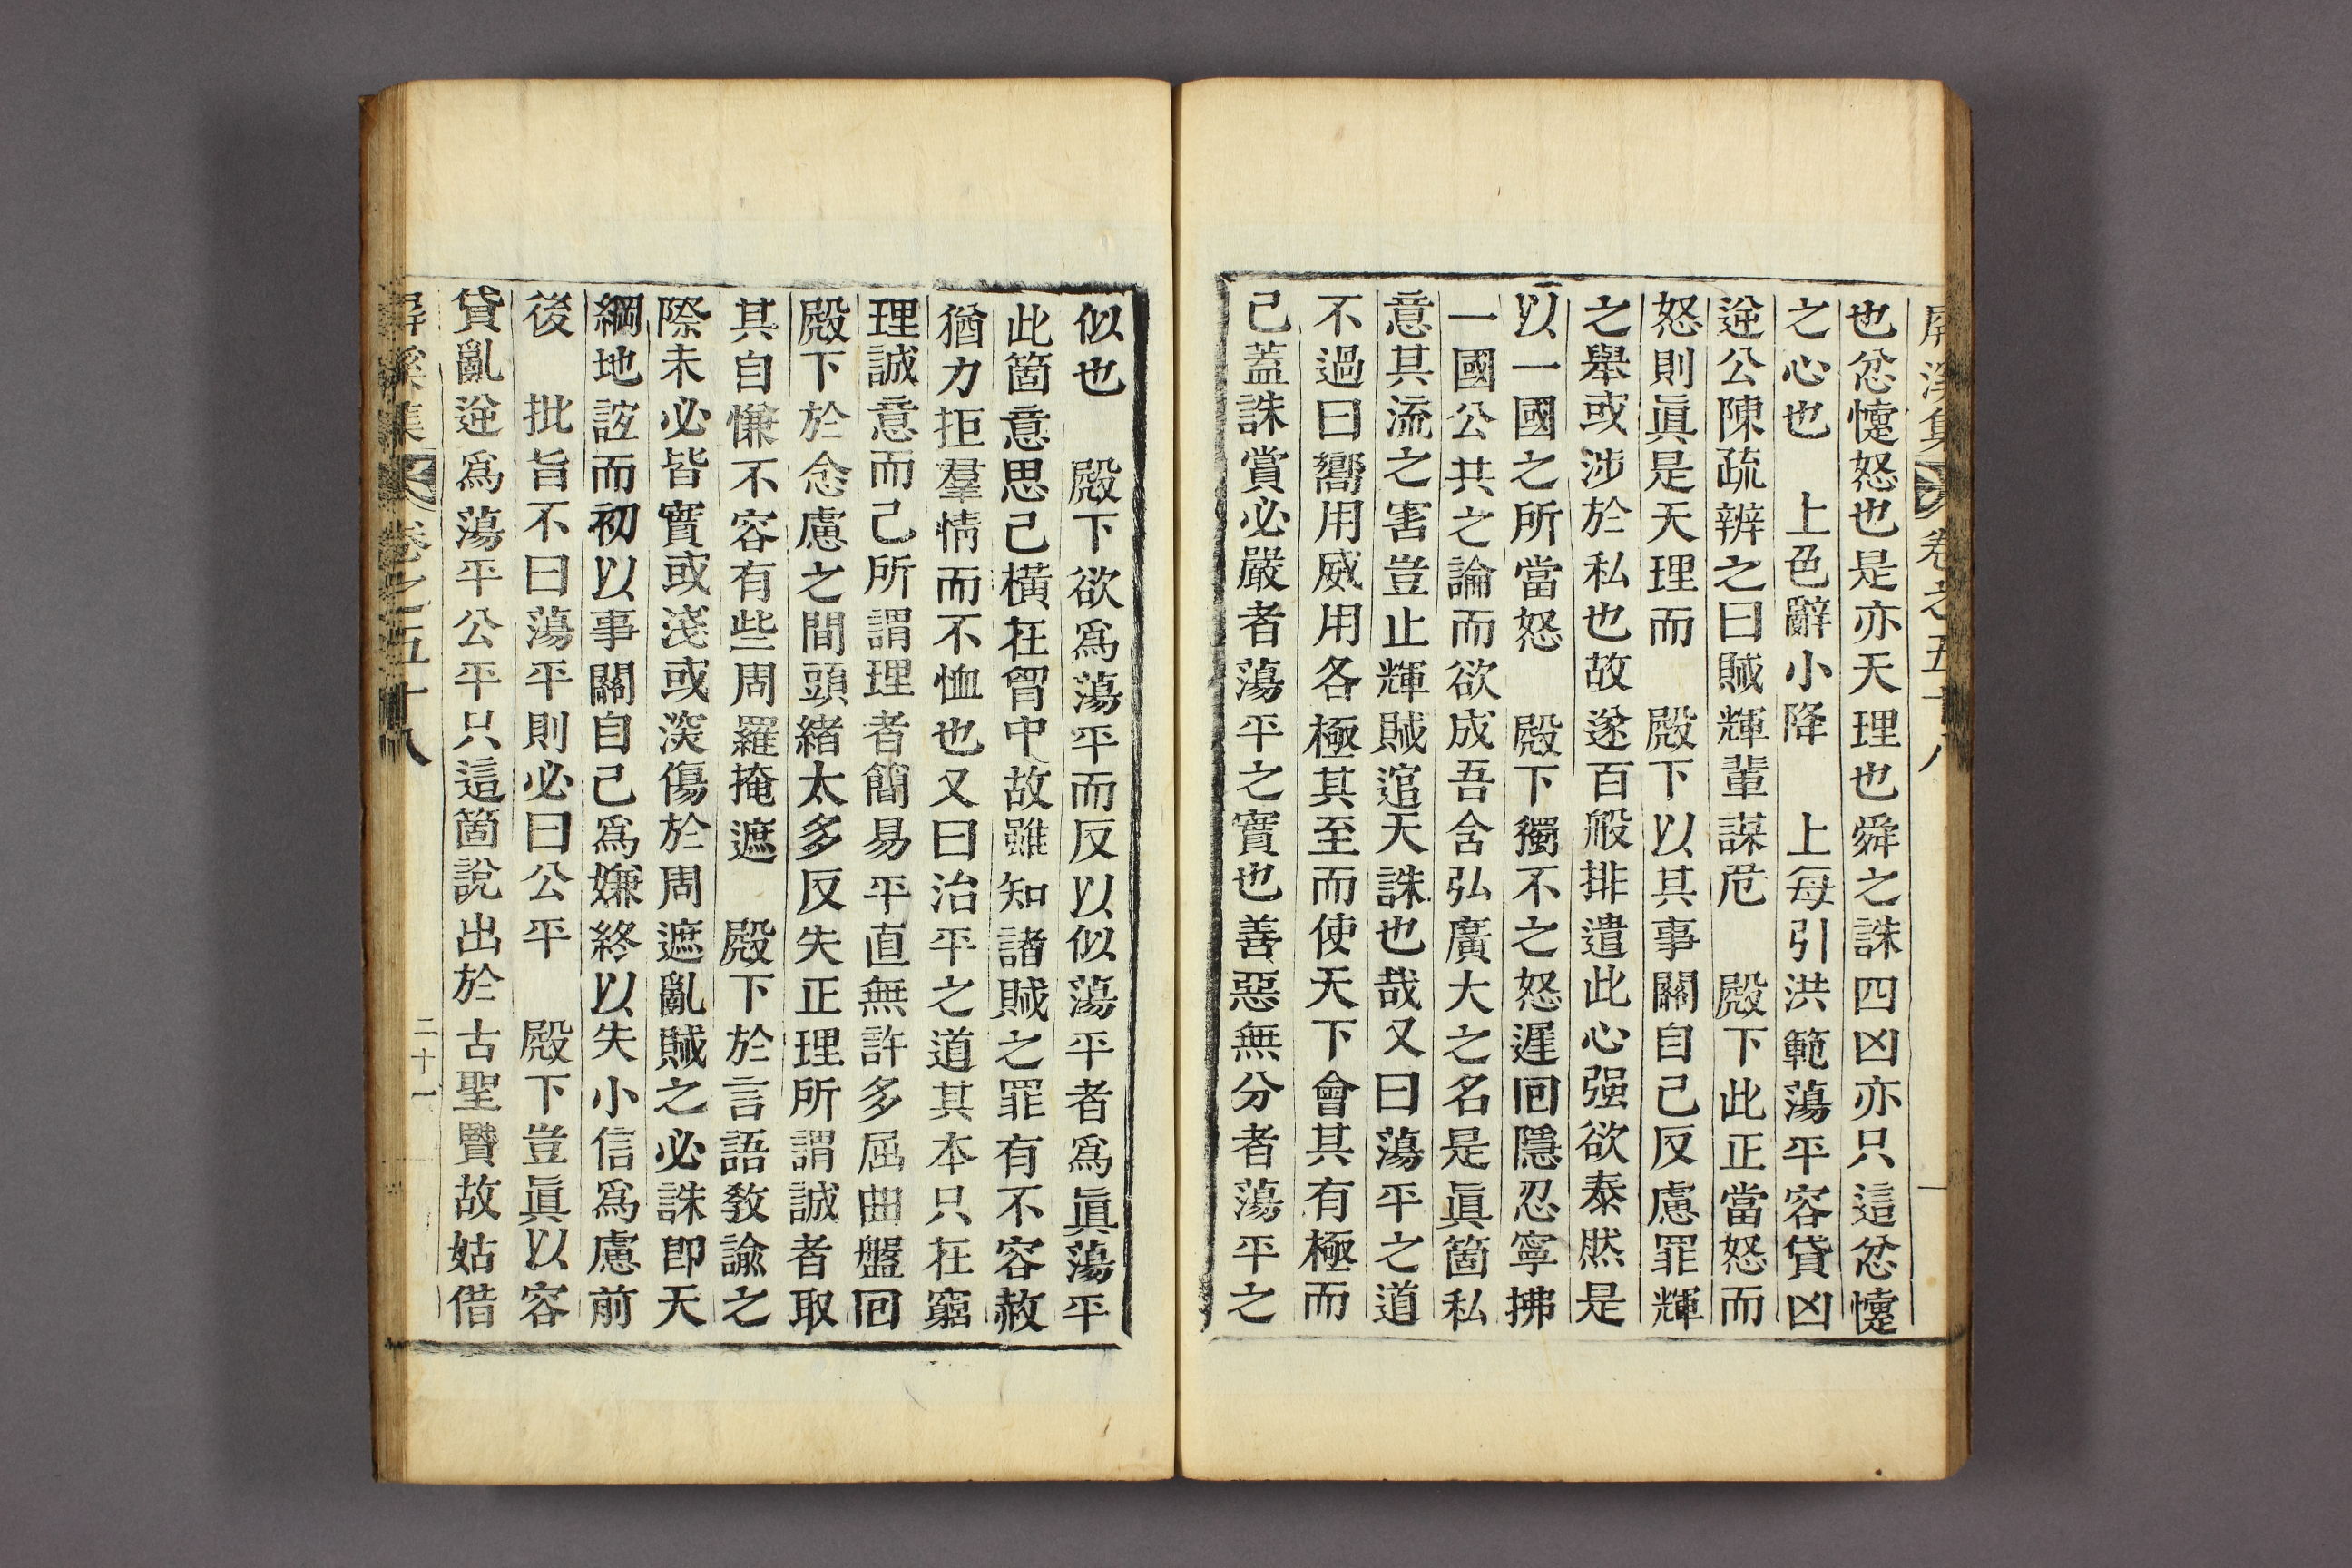 屛溪集 卷之五十八
也忿懥怒也是亦天理也舜之誅四凶亦只這忿懥
之心也 上色辭小降 上每引洪範蕩平容貸凶
逆公陳疏辨之曰賊輝輩謀危 殿下此正當怒而
怒則眞是天理而 殿下以其事關自己反慮罪輝
之舉或涉於私也故遂百般排遣此心强欲泰然是
以一國之所當怒 殿下獨不之怒遲回隱忍寧拂
一國公共之論而欲成吾含弘廣大之名是眞箇私
意其流之害豈止輝賊逭天誅也哉又曰蕩平之道
不過曰嚮用威用各極其至而使天下會其有極而
己蓋誅賞必嚴者蕩平之實也善惡無分者蕩平之
似也 殿下欲爲蕩平而反以似蕩平者爲眞蕩平
此箇意思己橫在胷中故雖知諸賊之罪有不容赦
猶力拒羣情而不恤也又曰治平之道其本只在窮
理誠意而己所謂理者簡易平直無許多屈曲盤回
殿下於念慮之間頭緖太多反失正理所謂誠者取
其自慊不容有些周羅掩遮 殿下於言語敎諭之
際未必皆實或淺或深傷於周遮亂賊之必誅卽天
綱地誼而初以事關自己爲嫌終以失小信爲慮前
後 批旨不曰蕩平則必曰公平 殿下豈眞以容
貸亂逆爲蕩平公平只這箇說出於古聖贒故姑借
屛溪集 卷之五十八 二十一